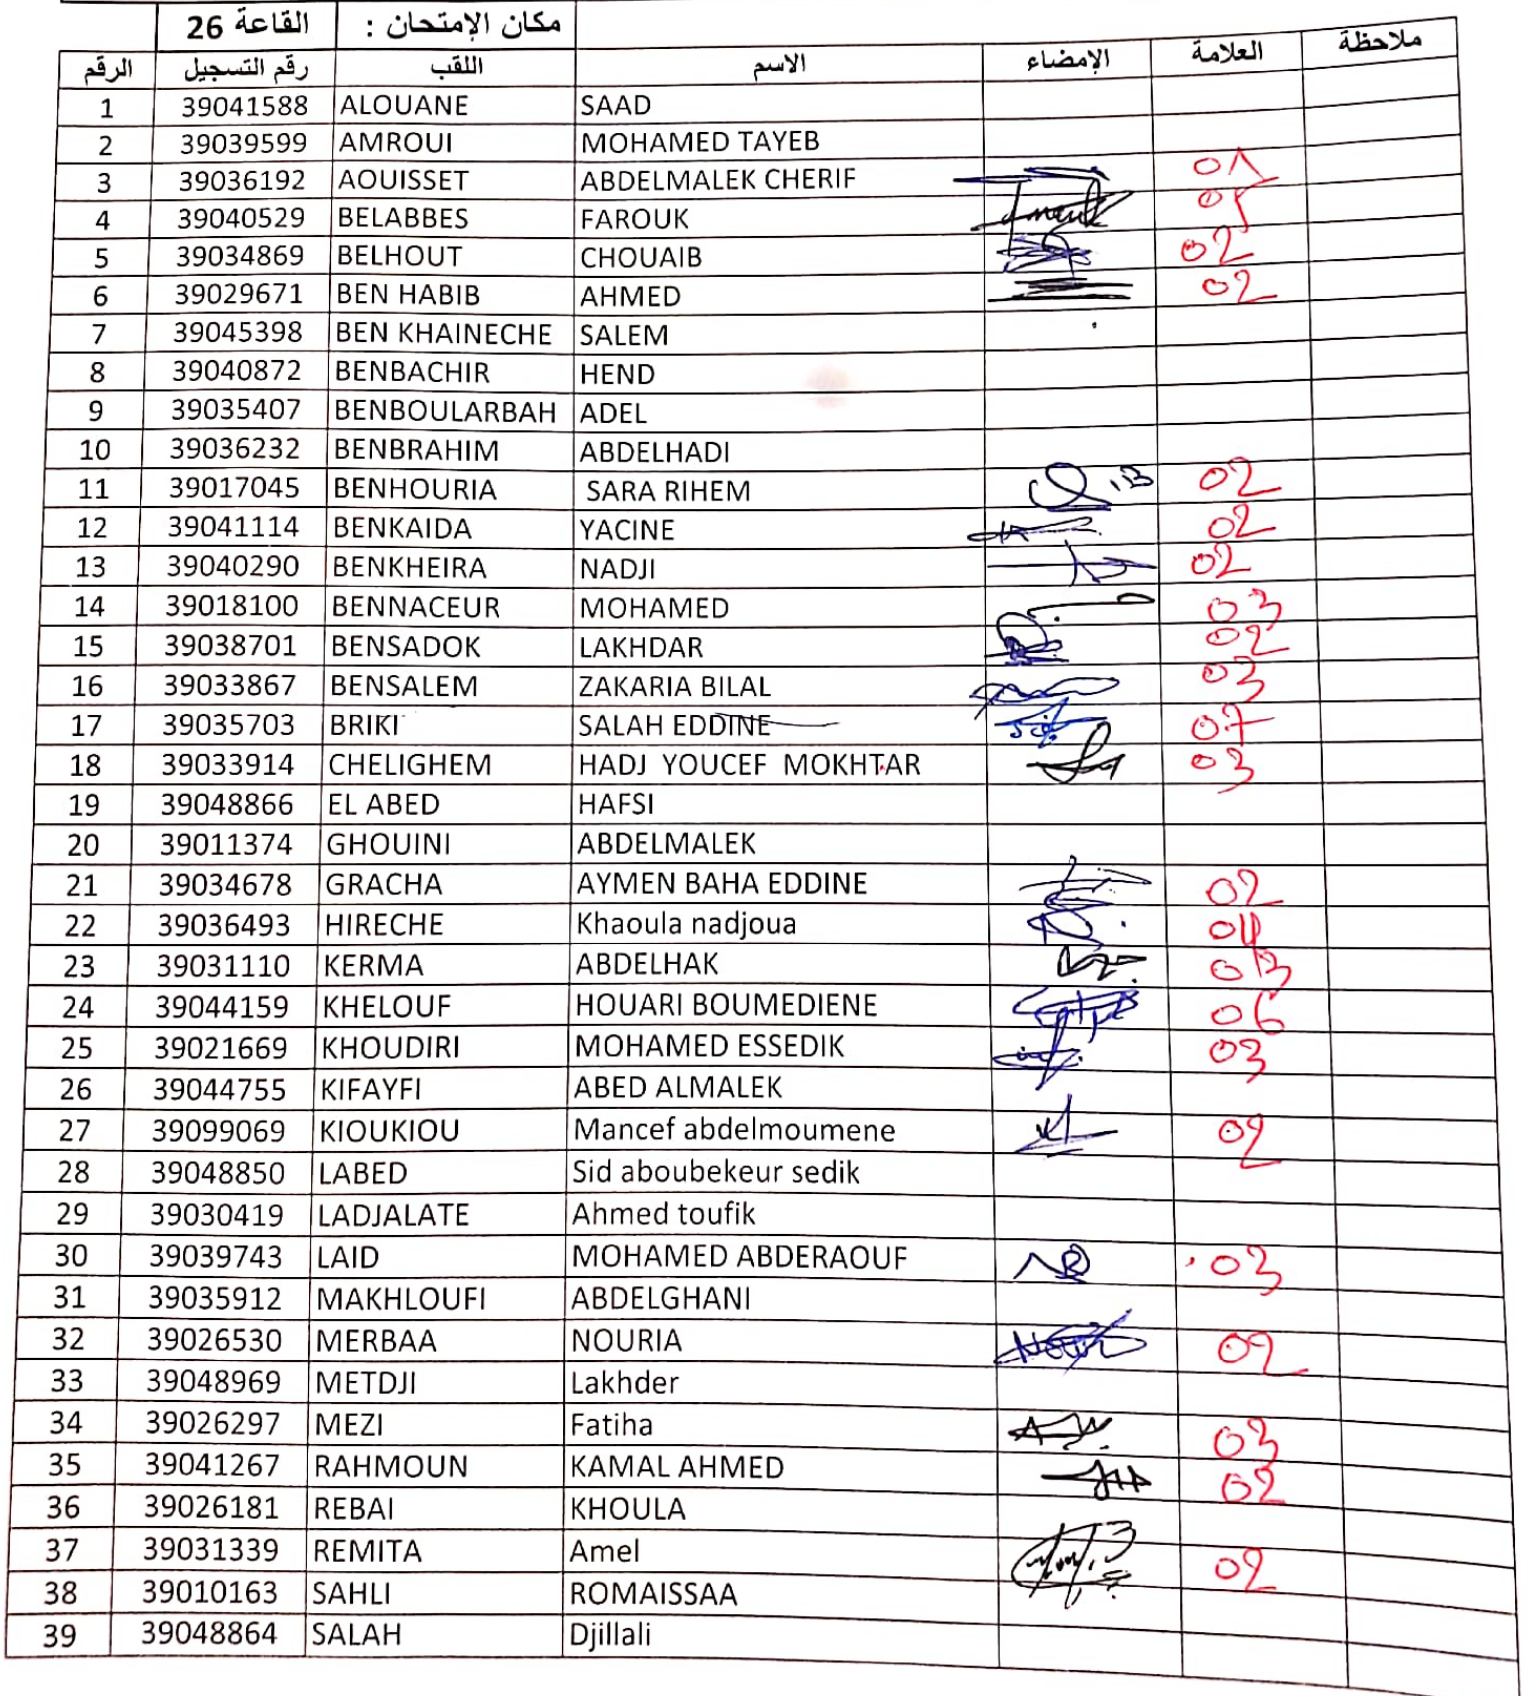 مكان الإمتحان : القاعة 26
الرقم رقم التسجيل اللقب الاسم الإمضاء العلامة ملاحظة
1 39041588 ALOUANE SAAD
2 39039599 AMROUI MOHAMED TAYEB
3 39036192 AOUISSET ABDELMALEK CHERIF 01
4 39040529 BELABBES FAROUK 05
5 39034869 BELHOUT CHOUAIB 02
6 39029671 BEN HABIB AHMED 02
7 39045398 BEN KHAINECHE SALEM
8 39040872 BENBACHIR HEND
9 39035407 BENBOULARBAH ADEL
10 39036232 BENBRAHIM ABDELHADI
11 39017045 BENHOURIA SARA RIHEM 02
12 39041114 BENKAIDA YACINE 02
13 39040290 BENKHEIRA NADJI 02
14 39018100 BENNACEUR MOHAMED 03
15 39038701 BENSADOK LAKHDAR 02
16 39033867 BENSALEM ZAKARIA BILAL 03
17 39035703 BRIKI SALAH EDDINE 07
18 39033914 CHELIGHEM HADJ YOUCEF MOKHTAR 03
19 39048866 EL ABED HAFSI
20 39011374 GHOUINI ABDELMALEK
21 39034678 GRACHA AYMEN BAHA EDDINE 02
22 39036493 HIRECHE Khaoula nadjoua
23 39031110 KERMA ABDELHAK
24 39044159 KHELOUF HOUARI BOUMEDIENE 06
25 39021669 KHOUDIRI MOHAMED ESSEDIK 03
26 39044755 KIFAYFI ABED ALMALEK
27 39099069 KIOUKIOU Mancef abdelmoumene 02
28 39048850 LABED Sid aboubekeur sedik
29 39030419 LADJALATE Ahmed toufik
30 39039743 LAID MOHAMED ABDERAOUF 03
31 39035912 MAKHLOUFI ABDELGHANI
32 39026530 MERBAA NOURIA 02
33 39048969 METDJI Lakhder
34 39026297 MEZI Fatiha 03
35 39041267 RAHMOUN KAMAL AHMED 02
36 39026181 REBAI KHOULA
37 39031339 REMITA Amel 02
38 39010163 SAHLI ROMAISSAA
39 39048864 SALAH Djillali